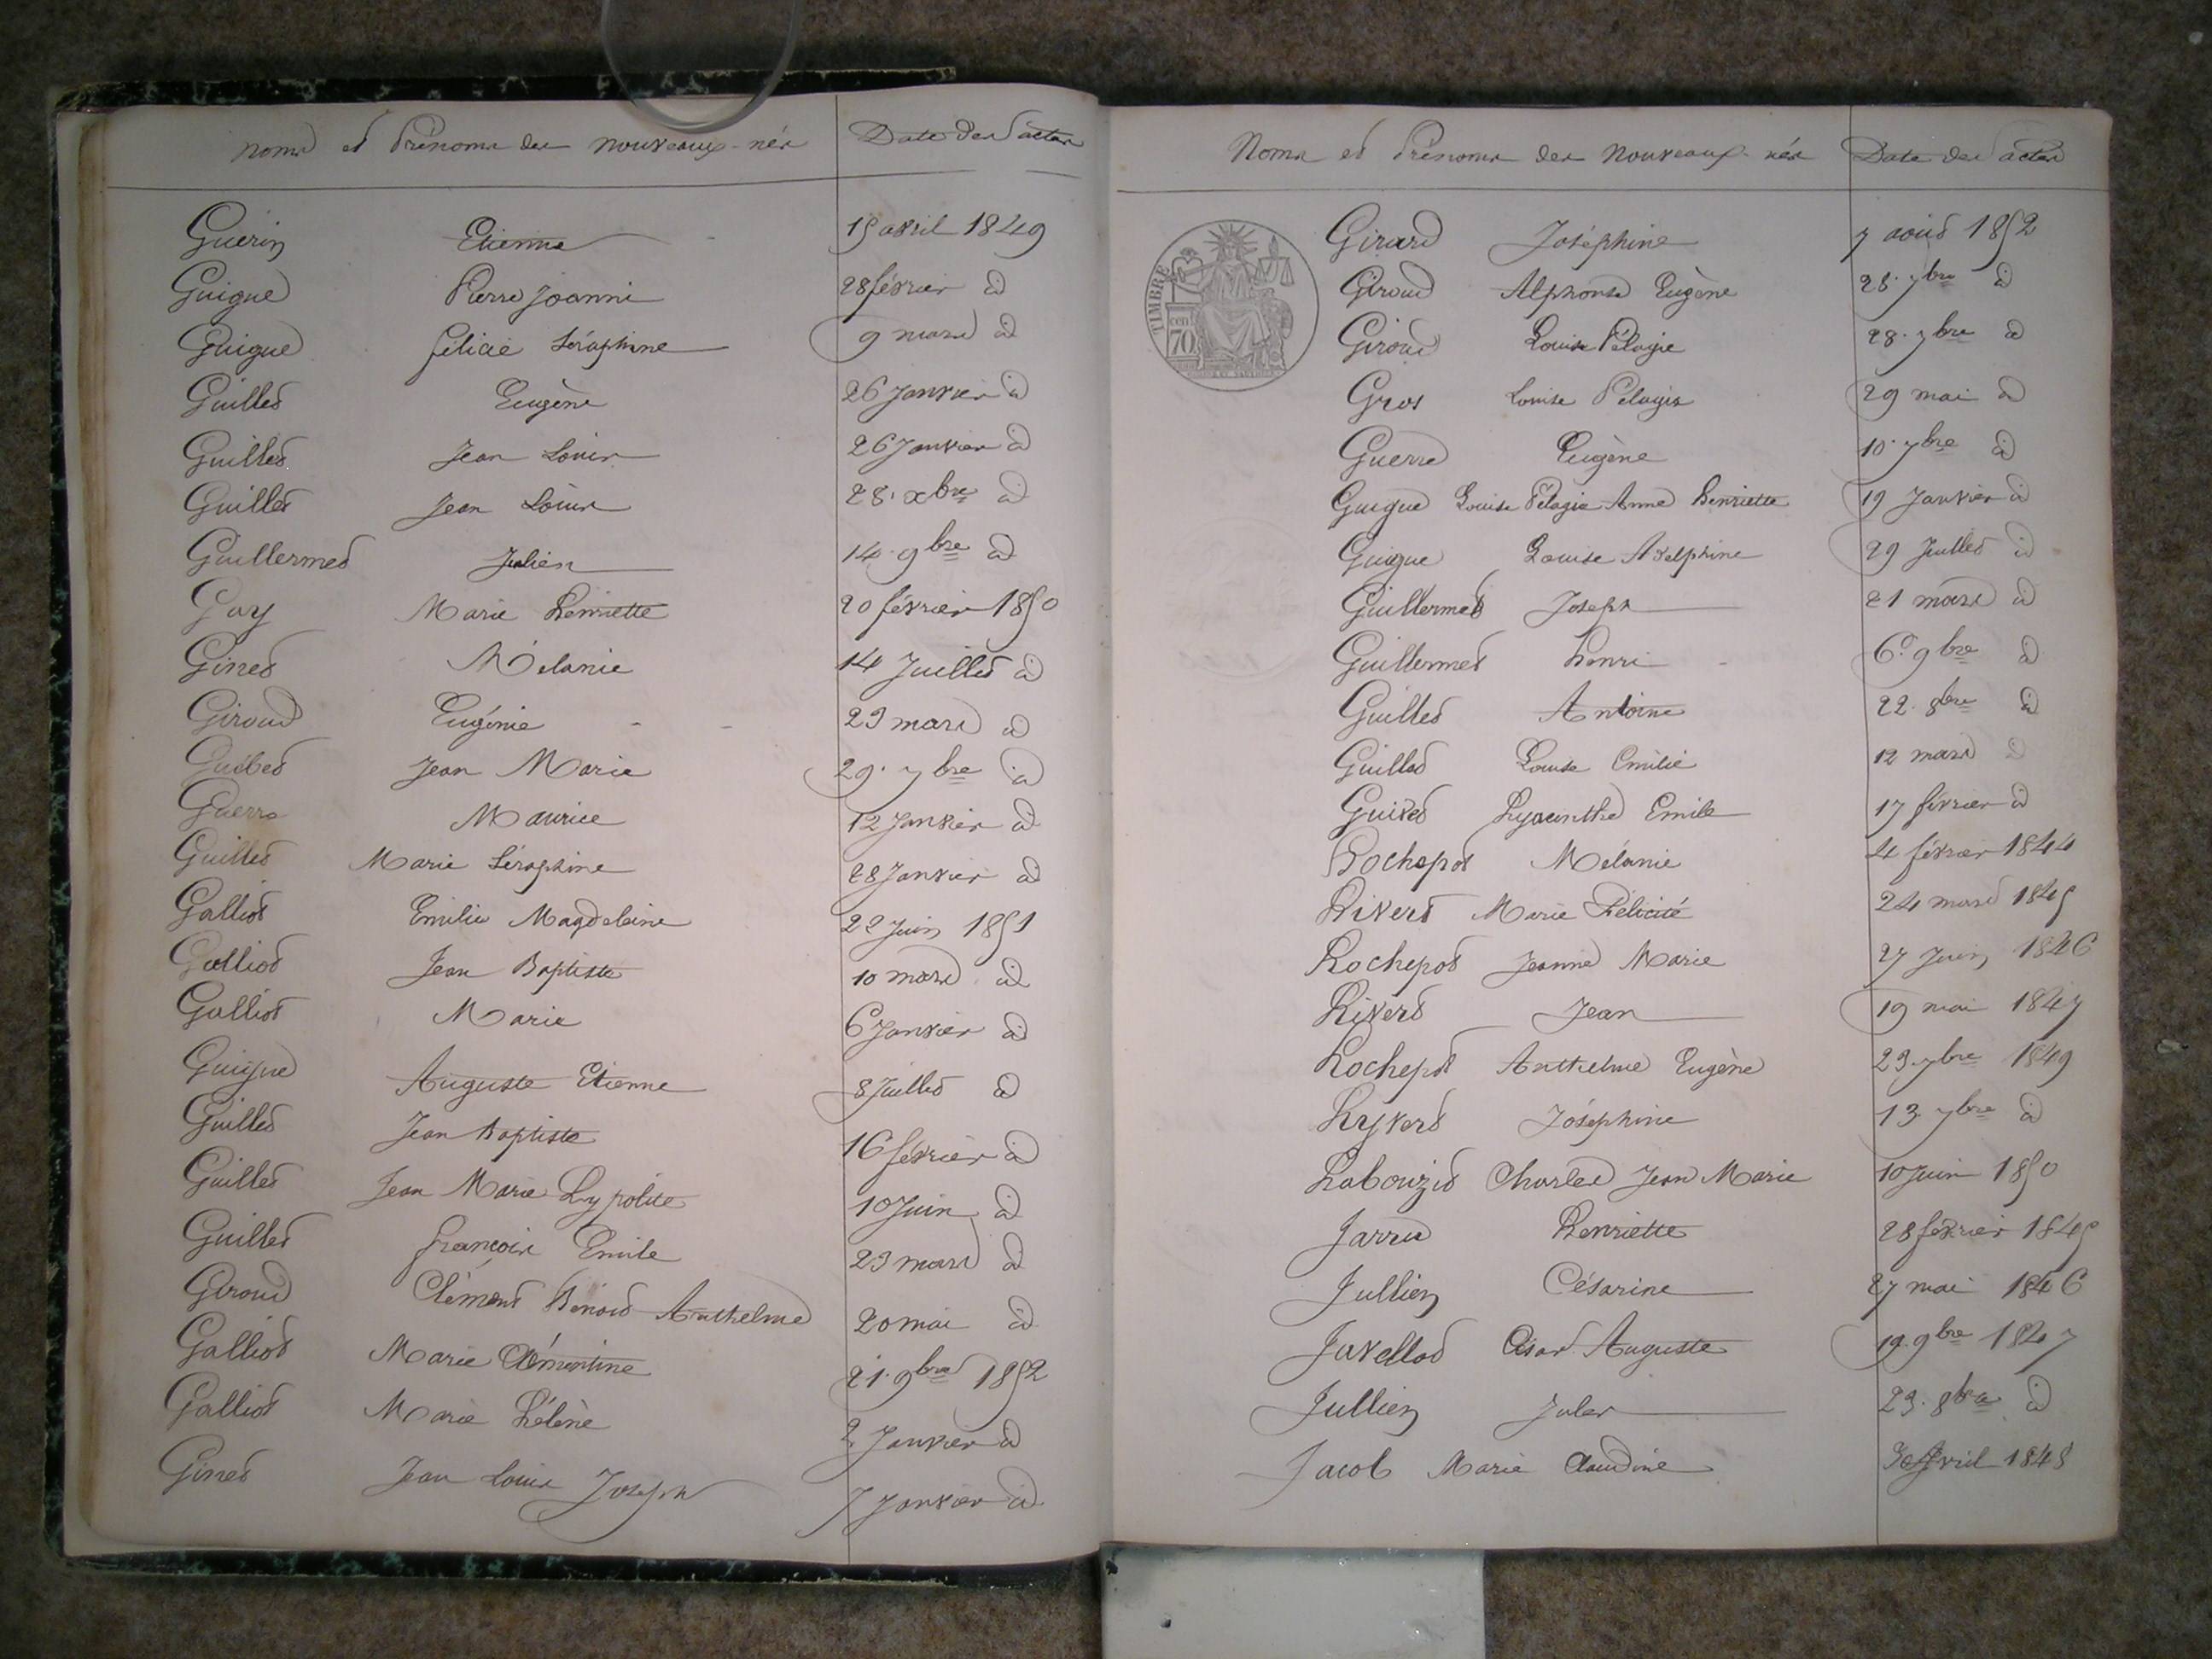 Noms et Prénoms des nouveaux-nés Date des actes
Guérin Etienne 15 avril 1849
Guigue Pierre Joanni 28 février id
Guigue Félicie Séraphine 9 mars id
Guillet Eugène 26 Janvier id
Guillet Jean Louis 26 Janvier id
Guillet Jean Louis 28. xbre id
Guillermet Julien 14. 9bre id
Gay Marie henriette 20 février 1850
Ginet Mélanie 14 Juillet id
Giroud Eugénie 23 mars id
Jean Marie 29. 7bre id
Guerre Maurice 12 Janvier id
Guillet Marie Séraphine 28 Janvier id
Galliot Emilie Magdeleine 22 Juin 1851
Galliot Jean Baptiste 10 mars id
Galliot Marie 6 Janvier id
Guigue Auguste Etienne 8 Juillet id
Guillet Jean Baptiste 16 février id
Guillet Jean Marie hypolite 10 Juin id
Guillet François Emile 23 mars id
Giroud Clément Benoit Anthelme 20 mai id
Galliot Marie Clémentine 21. 9bre 1852
Galliot Marie hélène 2 Janvier id
Ginet Jean Louis Joseph 7 Janvier id
Noms et Prénoms des Nouveaux-nés Date des actes
TIMBRE
70
Girard Joséphine 7 août 1852
Giroud Alphonse Eugène 28. 7bre id
Giroud Louise Pélagie 28. 7bre id
Gros Louise Pélagie 29 mai id
Guerre Eugène 10. 7bre id
Guigue Louise Pélagie Anne henriette 19 Janvier id
Guigue Louise Adelphine 29 Juillet id
Guillermet Joseph 21 mars id
Guillermet henri 6. 9bre id
Guillet Antoine 22. 8bre id
Guillot Louise Emilie 12 mars id
Guivet hyacinthe Emile 17 février id
hochepot Mélanie 4 février 1844
hivert Marie félicité 24 mars 1845
hochepot Jeanne Marie 27 Juin 1846
hivert Jean 19 mai 1847
hochepot Anthelme Eugène 23. 7bre 1849
hyvert Joséphine 13. 7bre id
habouzit Charles Jean Marie 10 Juin 1850
Jarru henriette 28 février 1845
Jullien Césarine 27 mai 1846
Javellot César Auguste 19. 9bre 1847
Jullien Jules 23. 8bre id
Jacob Marie Claudine avril 1848